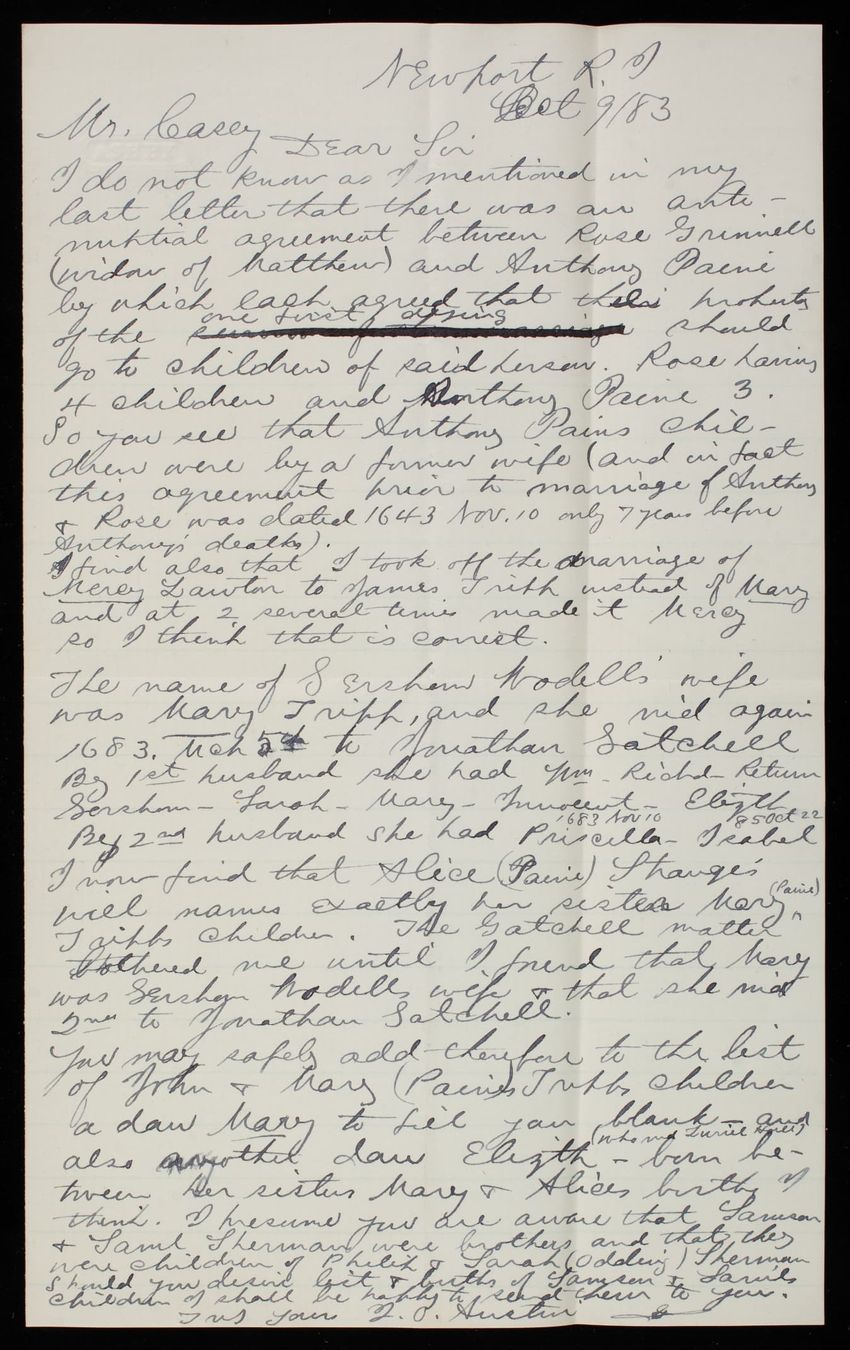 Newport R. I
Oct 9/83
Mr. Casey
Dear Sir
I do not know as I mentioned in my
last letter that there was an ante-
nuptial agreement between Rose Grinnell
(widow of Matthew) and Anthony Paine
by which each agreed that their property
one first dying
of the should
go to children of said person. Rose having
4 children and Anthony Paine 3.
So you see that Anthony Pains chil-
dren were by a former wife (and in fact
this agreement prior to marriage of Anthony
& Rose was dated 1643 Nov. 10 only 7 years before
Anthony's death).
I find also that I took off the marriage of
Mercy Lawton to James Tripp instead of Mary
and at 2 several times made it Mercy
so I think that is correct.
The name of Gersham Wodells' wife
was Mary Tripp, and she md again
1683. Mch 5th to Jonathan Gatchell
By 1st husband she had Wm - Richd - Return
Gersham - Sarah - Mary - Innocent - Elizth
1683 Nov 10 85 Oct 22
By 2nd husband she had Priscilla - Isabel
I now find that Alice (Paine) Strange's
will names exactly her sister Mary (Paine)
Tripps children. The Gatchell matter
bothered me until I found that Mary
was Gersham Wodells wife & that she md
2nd to Jonathan Gatchell.
You may safely add therefore to the list
of John & Mary (Paine) Tripps children
a dau Mary to fill your blank - and
(who md Zuriel Hall)
also another dau Elizth - born be-
tween her sisters Mary & Alices births I
think. I presume you are aware that Samson
& Saml Sherman were brothers and that they
were children of Philip & Sarah (Odding) Sherman
Should you desire list & births of Samson & Samls
children I shall be happy to send them to you.
Truly Yours J. O. Austin